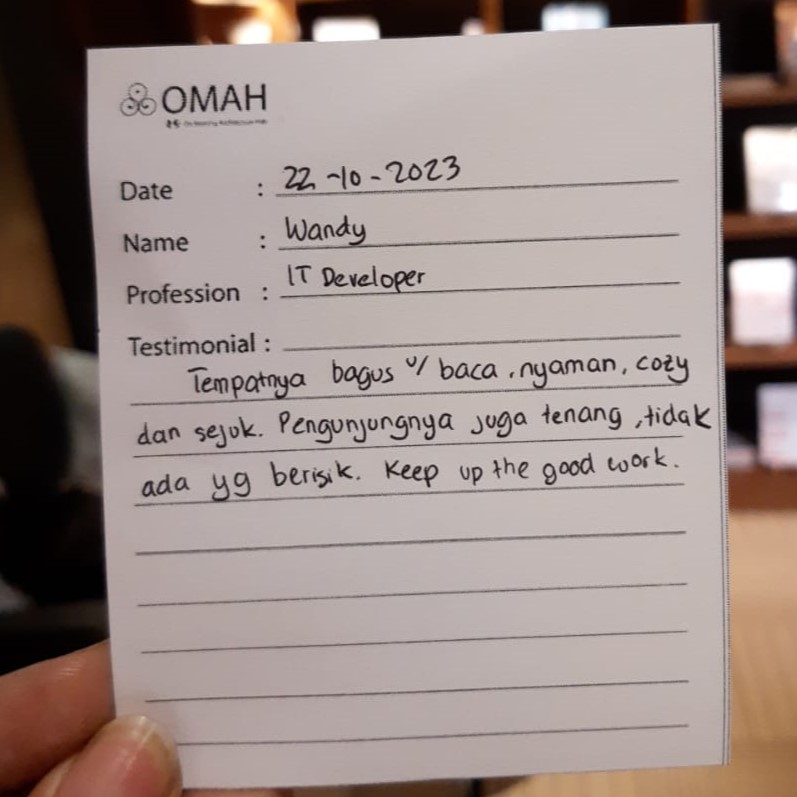 OMAH
Date : 22-10-2023
Name : Wandy
Profession : IT Developer
Testimonial :
Tempatnya bagus u/ baca, nyaman, cozy
dan sejuk. Pengunjungnya juga tenang, tidak
ada yg berisik. Keep up the good work.